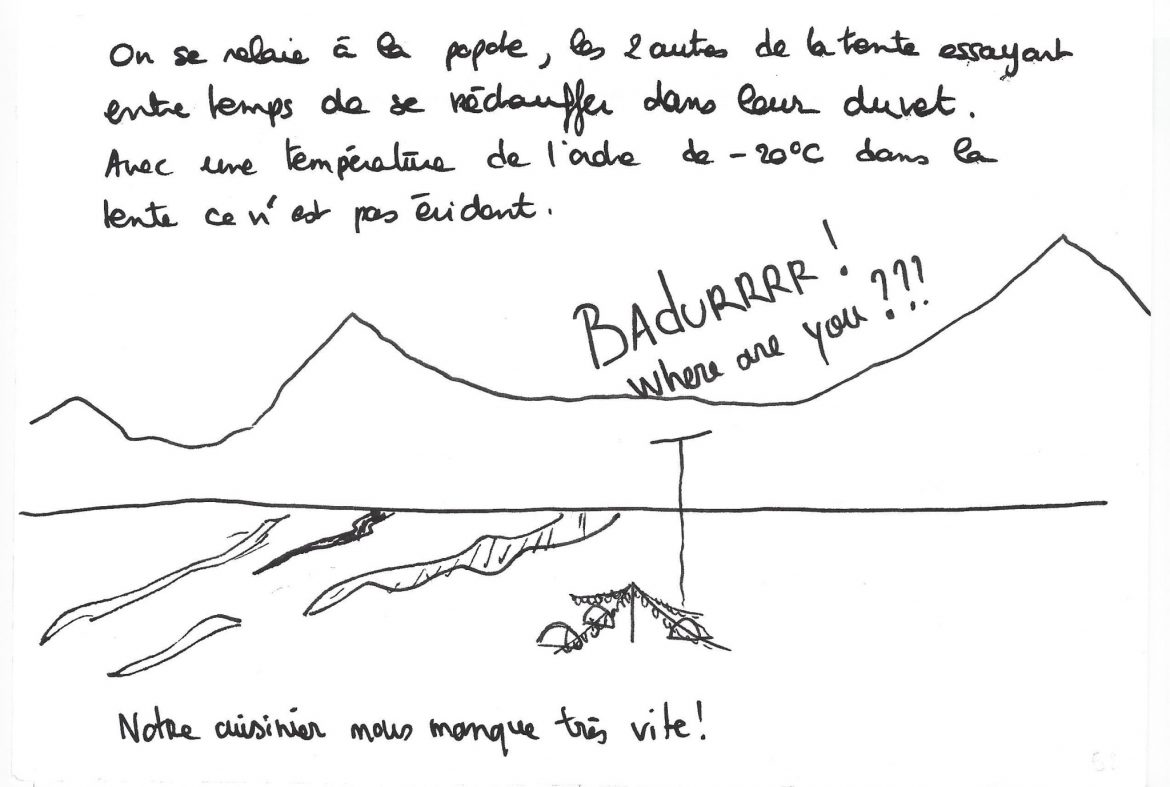 On se relaie à la popote, les 2 autres de la tente essayant
entre temps de se réchauffer dans leur duvet.
Avec une température de l'ordre de -20°C dans la
tente ce n'est pas évident.
BADURRRR!
where are you???
Notre cuisinier nous manque très vite!
52